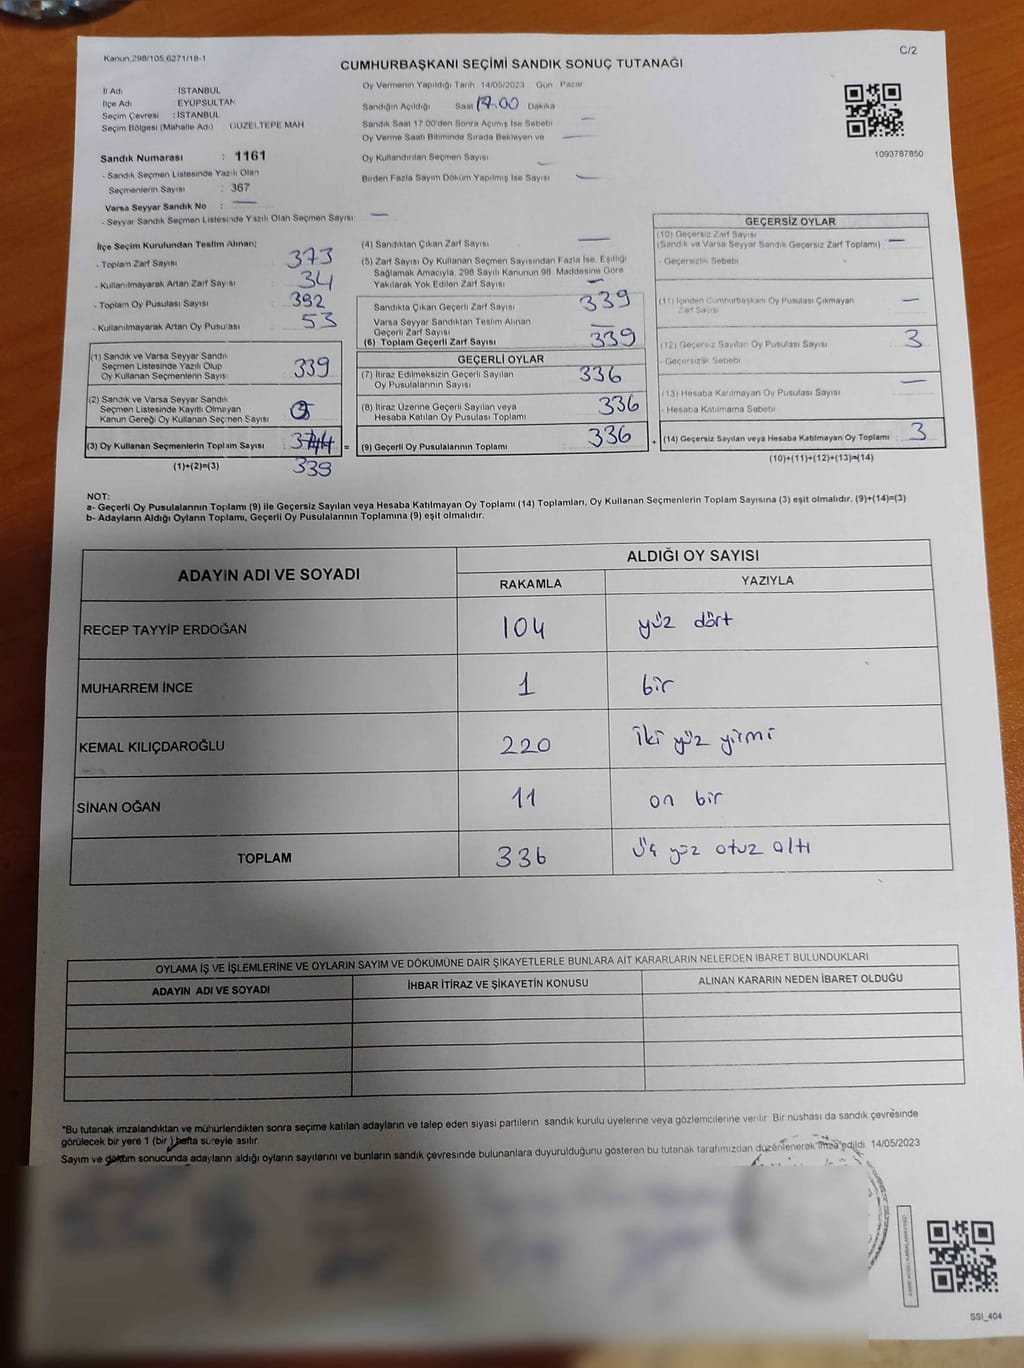 Kanun,298/105,6271/18-1
C/2
CUMHURBAŞKANI SEÇİMİ SANDIK SONUÇ TUTANAĞI
İl Adı : İSTANBUL
İlçe Adı : EYÜPSULTAN
Seçim Çevresi : İSTANBUL
Seçim Bölgesi (Mahalle Adı) GÜZELTEPE MAH
Oy Vermenin Yapıldığı Tarih 14/05/2023 Gün : Pazar
Sandığın Açıldığı Saat 17.00 Dakika
Sandık Saat 17:00'den Sonra Açımış İse Sebebi —
Oy Verme Saati Bitiminde Sırada Bekleyen ve —
Oy Kullandırılan Seçmen Sayısı —
Birden Fazla Sayım Döküm Yapılmış İse Sayısı —
1093787850
Sandık Numarası : 1161
- Sandık Seçmen Listesinde Yazılı Olan
Seçmenlerin Sayısı : 367
Varsa Seyyar Sandık No : —
- Seyyar Sandık Seçmen Listesinde Yazılı Olan Seçmen Sayısı : —
İlçe Seçim Kurulundan Teslim Alınan;
- Toplam Zarf Sayısı 373
- Kullanılmayarak Artan Zarf Sayısı : 34
- Toplam Oy Pusulası Sayısı : 392
- Kullanılmayarak Artan Oy Pusulası : 53
(1) Sandık ve Varsa Seyyar Sandık
Seçmen Listesinde Yazılı Olup
Oy Kullanan Seçmenlerin Sayısı : 339
(2) Sandık ve Varsa Seyyar Sandık
Seçmen Listesinde Kayıtlı Olmayan
Kanun Gereği Oy Kullanan Seçmen Sayısı :
(3) Oy Kullanan Seçmenlerin Toplam Sayısı : 344 =
(1)+(2)=(3) 339
(4) Sandıktan Çıkan Zarf Sayısı —
(5) Zarf Sayısı Oy Kullanan Seçmen Sayısından Fazla İse, Eşitliği
Sağlamak Amacıyla, 298 Sayılı Kanunun 98. Maddesine Göre
Yakılarak Yok Edilen Zarf Sayısı : —
Sandıkta Çıkan Geçerli Zarf Sayısı : 339
Varsa Seyyar Sandıktan Teslim Alınan
Geçerli Zarf Sayısı : —
(6) Toplam Geçerli Zarf Sayısı : 339
GEÇERLİ OYLAR
(7) İtiraz Edilmeksizin Geçerli Sayılan
Oy Pusulalarının Sayısı : 336
(8) İtiraz Üzerine Geçerli Sayılan veya
Hesaba Katılan Oy Pusulası Toplamı : 336
(9) Geçerli Oy Pusulalarının Toplamı : 336 +
GEÇERSİZ OYLAR
(10) Geçersiz Zarf Sayısı
(Sandık ve Varsa Seyyar Sandık Geçersiz Zarf Toplamı) : —
- Geçersizlik Sebebi :
(11) İçinden Cumhurbaşkanı Oy Pusulası Çıkmayan
Zarf Sayısı : —
(12) Geçersiz Sayılan Oy Pusulası Sayısı : 3
- Geçersizlik Sebebi :
(13) Hesaba Katılmayan Oy Pusulası Sayısı : —
- Hesaba Katılmama Sebebi :
(14) Geçersiz Sayılan veya Hesaba Katılmayan Oy Toplamı : 3
(10)+(11)+(12)+(13)=(14)
NOT:
a- Geçerli Oy Pusulalarının Toplamı (9) ile Geçersiz Sayılan veya Hesaba Katılmayan Oy Toplamı (14) Toplamları, Oy Kullanan Seçmenlerin Toplam Sayısına (3) eşit olmalıdır. (9)+(14)=(3)
b- Adayların Aldığı Oyların Toplamı, Geçerli Oy Pusulalarının Toplamına (9) eşit olmalıdır.
ADAYIN ADI VE SOYADI
ALDIĞI OY SAYISI
RAKAMLA YAZIYLA
RECEP TAYYİP ERDOĞAN 104 yüz dört
MUHARREM İNCE 1 bir
KEMAL KILIÇDAROĞLU 220 iki yüz yirmi
SİNAN OĞAN 11 on bir
TOPLAM 336 üç yüz otuz altı
OYLAMA İŞ VE İŞLEMLERİNE VE OYLARIN SAYIM VE DÖKÜMÜNE DAİR ŞİKAYETLERLE BUNLARA AİT KARARLARIN NELERDEN İBARET BULUNDUKLARI
ADAYIN ADI VE SOYADI İHBAR İTİRAZ VE ŞİKAYETİN KONUSU ALINAN KARARIN NEDEN İBARET OLDUĞU
*Bu tutanak imzalandıktan ve mühürlendikten sonra seçime katılan adayların ve talep eden siyasi partilerin sandık kurulu üyelerine veya gözlemcilerine verilir. Bir nüshası da sandık çevresinde
görülecek bir yere 1 (bir ) hafta süreyle asılır.
Sayım ve döküm sonucunda adayların aldığı oyların sayılarını ve bunların sandık çevresinde bulunanlara duyurulduğunu gösteren bu tutanak tarafımızdan düzenlenerek imza edildi. 14/05/2023
SSI_404